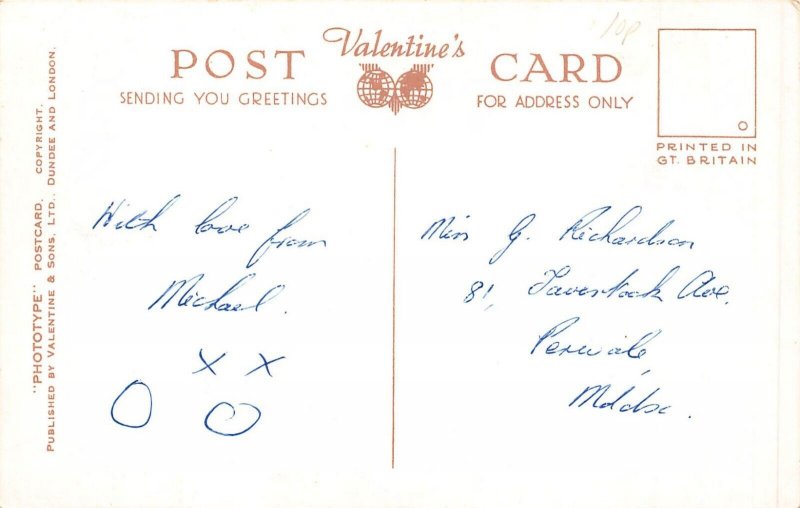 10p
Valentine's
POST CARD
SENDING YOU GREETINGS
FOR ADDRESS ONLY
PRINTED IN
GT. BRITAIN
"PHOTOTYPE" POSTCARD. COPYRIGHT.
PUBLISHED BY VALENTINE & SONS, LTD., DUNDEE AND LONDON.
With love from
Michael.
X X
O O
Miss G. Richardson
81, Tavistock Ave.
Perivale,
Middsx.